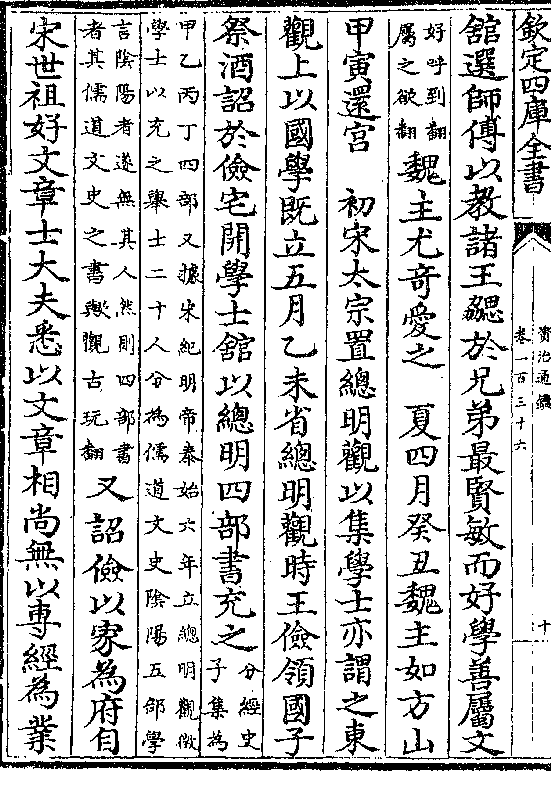 欽定四庫全書
資治通鑑
卷一百三十六
十
舘選師傅以教諸王勰於兄弟最賢敏而好學善屬文
好呼到翻
屬之欲翻
魏主尤奇愛之　夏四月癸丑魏主如方山
甲寅還宮　初宋太宗置總明觀以集學士亦謂之東
觀上以國學既立五月乙未省總明觀時王儉領國子
祭酒詔於儉宅開學士舘以總明四部書充之
分經史
子集為
甲乙丙丁四部又據宋紀明帝泰始六年立總明觀徴
學士以充之舉士二十人分為儒道文史陰陽五部學
言陰陽者遂無其人然則四部書
者其儒道文史之書歟觀古玩翻
又詔儉以家為府自
宋世祖好文章士大夫悉以文章相尚無以專經為業